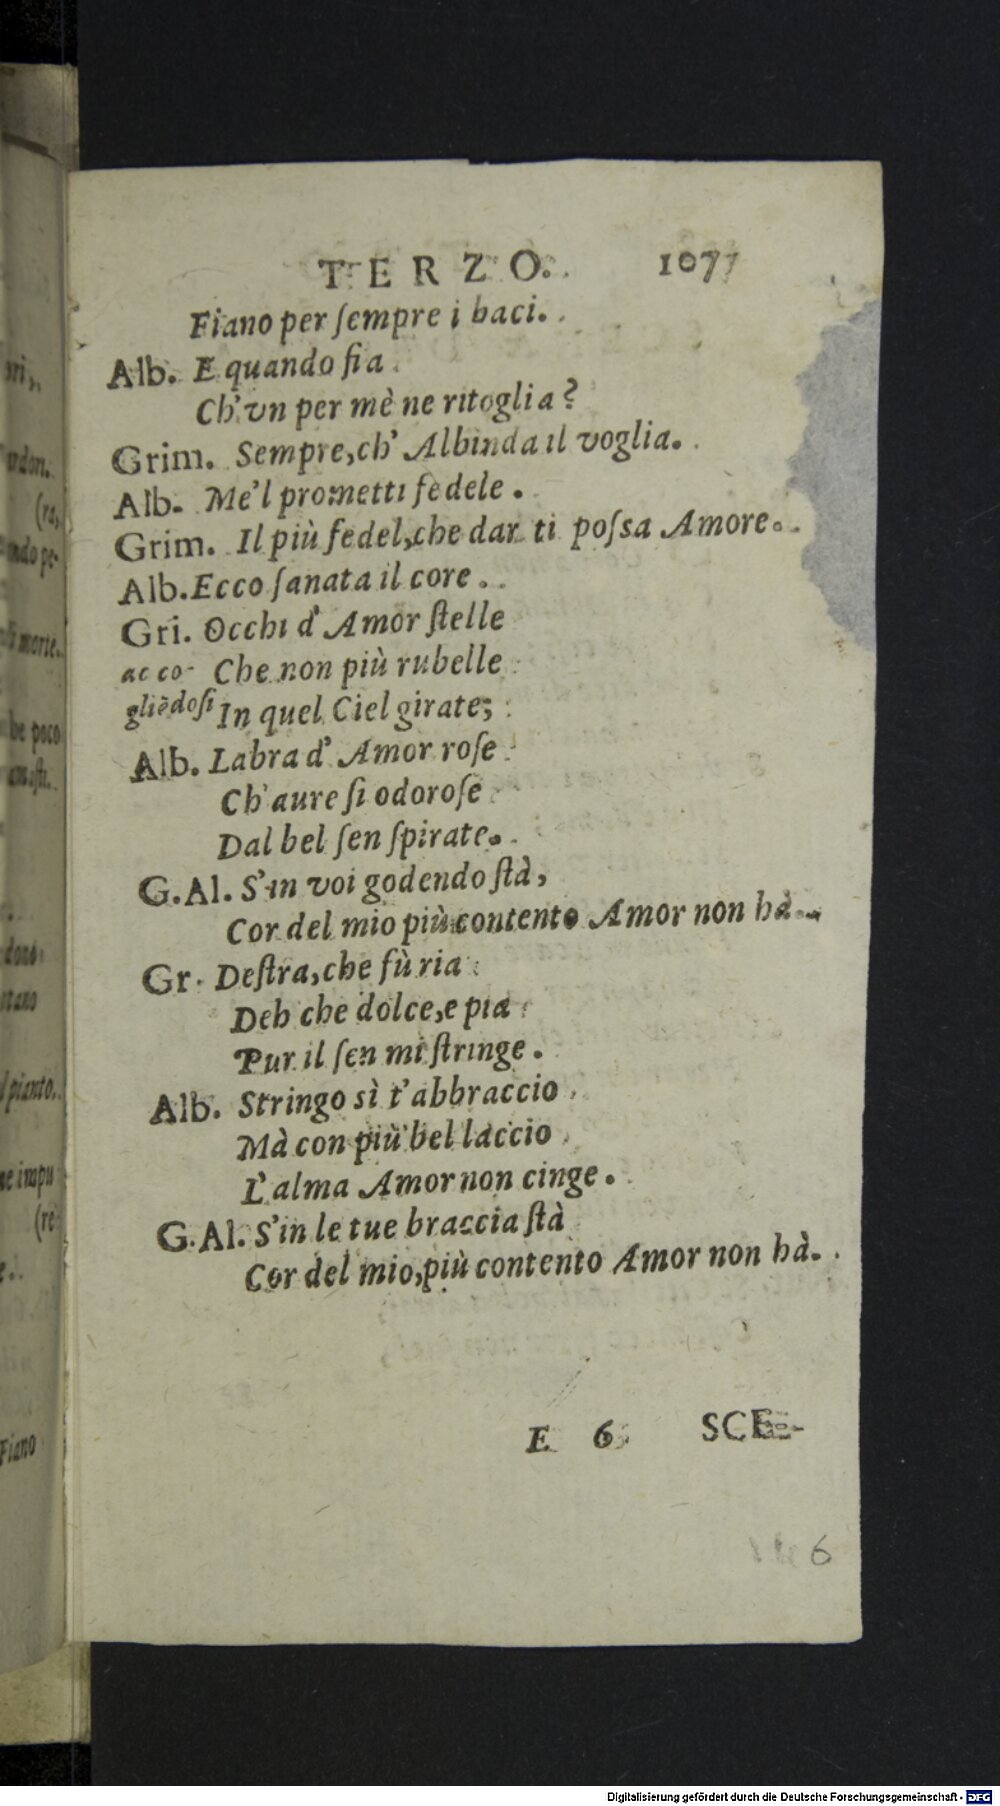 TERZO. 107
Fiano per ſempre i baci.
Alb. E quando fia
Ch'vn per mè ne ritoglia?
Grim. Sempre, ch' Albinda il voglia.
Alb. Me'l prometti fedele.
Grim. Il più fedel, che dar ti poſsa Amore.
Alb. Ecco ſanata il core.
Gri. Occhi d' Amor ſtelle
acco- Che non più rubelle
gliēdoſi In quel Ciel girate;
Alb. Labra d' Amor roſe
Ch'aure ſi odoroſe
Dal bel ſen ſpirate.
G.Al. S'in voi godendo ſtà,
Cor del mio più contento Amor non hà.
Gr. Deſtra, che fù ria
Deh che dolce, e pia
Pur il ſen mi ſtringe.
Alb. Stringo sì t'abbraccio
Mà con più bel laccio
L'alma Amor non cinge.
G.Al. S'in le tue braccia ſtà
Cor del mio, più contento Amor non hà.
E 6 SCE-
6
ori,
(ra,
morte.
be poco
pianto.
ne impu
(re
Fiano
Digitalisierung gefördert durch die Deutsche Forschungsgemeinschaft - DFG